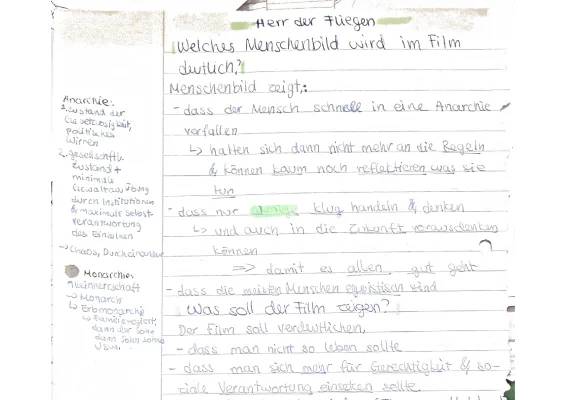 Herr der Fliegen
Welches Menschenbild wird im Film
deutlich?
Menschenbild zeigt,:
- dass der Mensch schnell in eine Anarchie
verfallen
↳ halten sich dann nicht mehr an die Regeln
& können kaum noch reflektieren was sie
tun
- dass nur wenige klug handeln & denken
↳ und auch in die Zukunft vorausdenken
können
⇒ damit es allen gut geht
- dass die meisten Menschen egoistisch sind
Was soll der Film zeigen?
Der Film soll verdeutlichen,
- dass man nicht so leben sollte
- dass man sich mehr für Gerechtigkeit & so-
ziale Verantwortung einsetzen sollte
Anarchie:
1. Zustand der
Gesetzlosigkeit,
politisches
Wirren
2. gesellschaftl.
Zustand +
minimale
Gewaltausübung
durch Institutionen
& maximale Selbst-
verantwortung
des Einzelnen
→ Chaos, Durcheinander
Monarchie:
↳ Monarch
↳ Erbmonarchie
dann der Sohn
dann Sohn
usw.